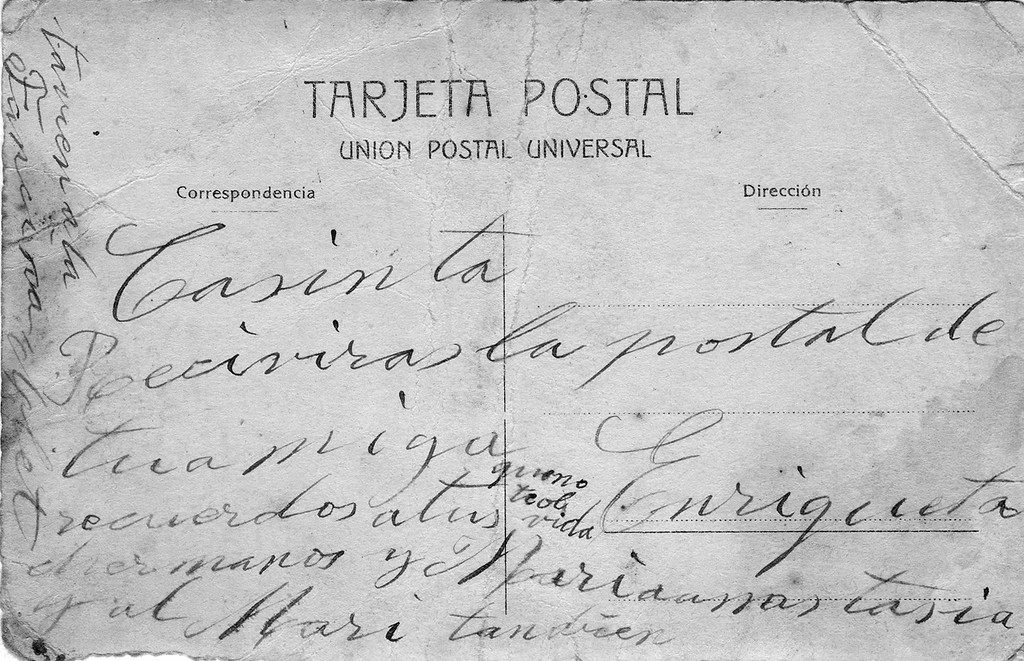 TARJETA POSTAL
UNION POSTAL UNIVERSAL
Correspondencia
Dirección
Casinta
Reciviras la postal de
tu amiga Enriqueta
que no
teol
vida
recuerdos a tus
hermanos y Maria anastasia
y al Mari tandien